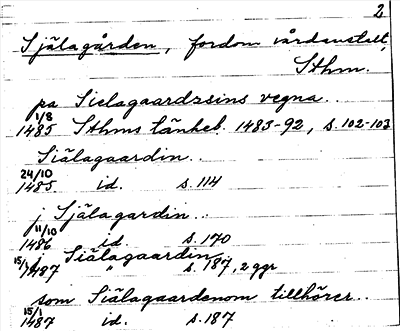 2
Själagården, fordom vårdanstalt,
Sthm.
pa Sielagaardzsins vegna..
1/8
1485 Sthms tänkeb. 1483-92, s.102-103
Siälagaardin..
24/10
1485. id. s.114
j Själagardin..
11/10
1486 id. s.170
j Siälagaardin
15/1 1487 " s.187, 2 ggr
som Siälagaardenom tillhörer..
15/1
1487 id. s.187